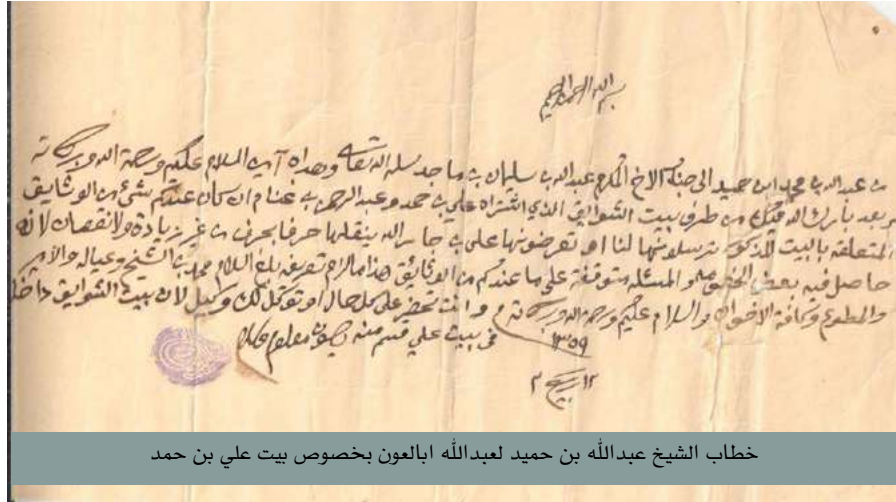 بسم الله الرحمن الرحيم
من عبدالله بن محمد ابن حميد الى جناب الاخ المكرم عبدالله بن سليمان بن ماجد سلمه الله تعالى وهداه آمين السلام عليكم ورحمة الله وبركاته
وبعد بارك الله فيك من طرف بيت الشوايق الذي اشتراه علي بن حمد وعبدالرحمن بن غنام ان كان عندكم شئ من الوثايق
المتعلقه بالبيت المذكور ترسلونها لنا او تعرضونها على بن جارالله ينقلها حرفا بحرف من غير زيادة ولا نقصان لانه
حاصل فيه بعض والمسئله متوقفة على ما عندكم من الوثائق هذا مالزم تعريفه بلغ السلام محمد الشيخ وعياله والأمير
والمطوع وكافة الاخوان والسلام عليكم ورحمة الله وبركاته وانت تحضر على كل حال او توكل لك وكيل لان بيت الشوايق داخل
في بيت علي قسم منه يكون معلوم
١٣٥٩
١٢ ربيع ٢
خطاب الشيخ عبدالله بن حميد لعبدالله ابالعون بخصوص بيت علي بن حمد